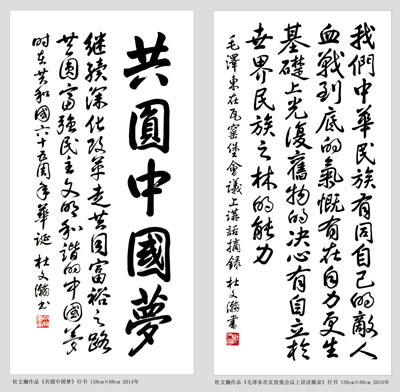 共圓中國夢
继續深化改革走共同富裕之路
共圆富强民主文明和谐的中國梦
时在共和國六十五周年華诞 杜文瀚书
杜文瀚作品《共圆中国梦》行书 138cm×68cm 2014年
我們中華民族有同自己的敵人
血戰到底的氣慨有在自力更生
基礎上光復舊物的决心有自立於
世界民族之林的能力
毛澤東在瓦窑堡會議上講話摘録 杜文瀚書
杜文瀚作品《毛泽东在瓦窑堡会议上讲话摘录》行书 138cm×68cm 2016年